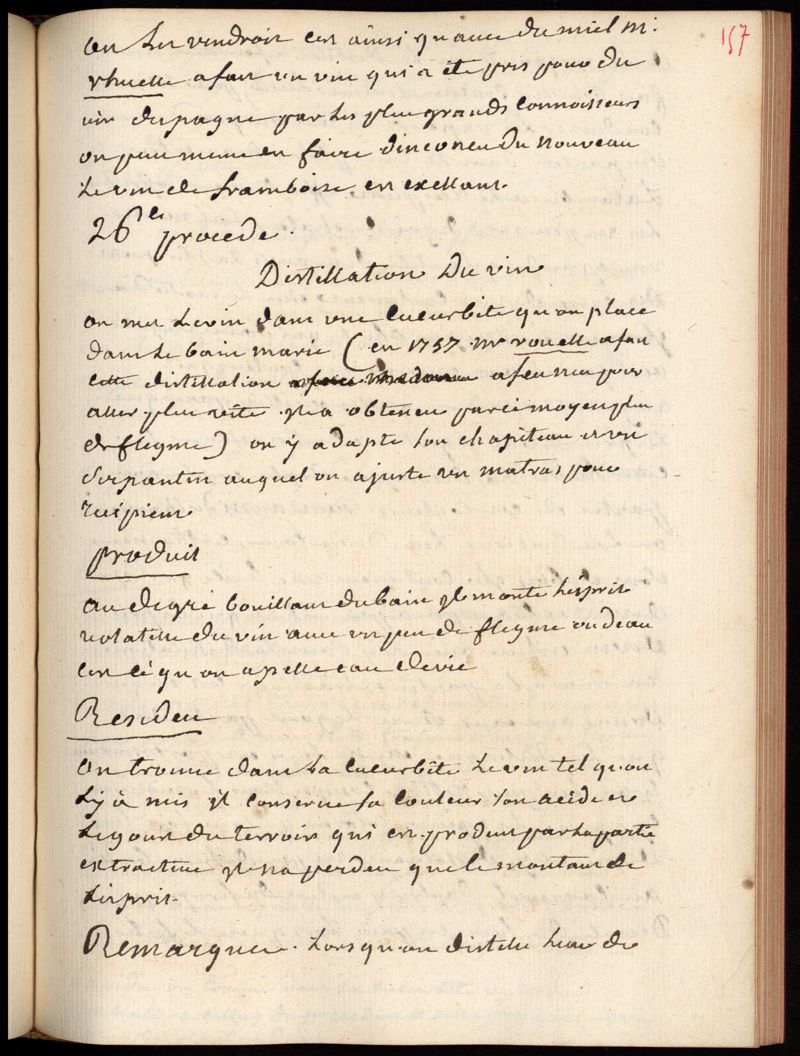 157
on les vendroit cest ainsi quavec du miel mr.
rhuelle a fait un vin qui a été pris pour du
vin despagne par les plus grands connoisseurs
on peut meme en faire dinconeu du nouveau
le vin de framboise est exellant.
26e procede.
Distillation Du vin
on met le vin dans une cucurbite qu'on place
dans le bain marie (en 1757 mr rouelle a fait
cette distillation a feu nu pour
aller plus vite il a obteneu par ce moyen plus
de flegme) on y adapte son chapiteau et un
serpantin auquel on ajuste un matras pour
recipient
produit
au degré bouillant du bain il monte lésprit
volatille du vin avec un peu de flegme ou deau
cest cé qu'on apelle eau de vie
Resideu
On trouve dans la cucurbite le vin tel qu'on
l'y à mis il conserve sa couleur son acide et
le gout du terroir qui est prodeut par la partie
extractive il na perdeu que le montant de
lesprit.
Remarques. lorsqu'on distille leau de